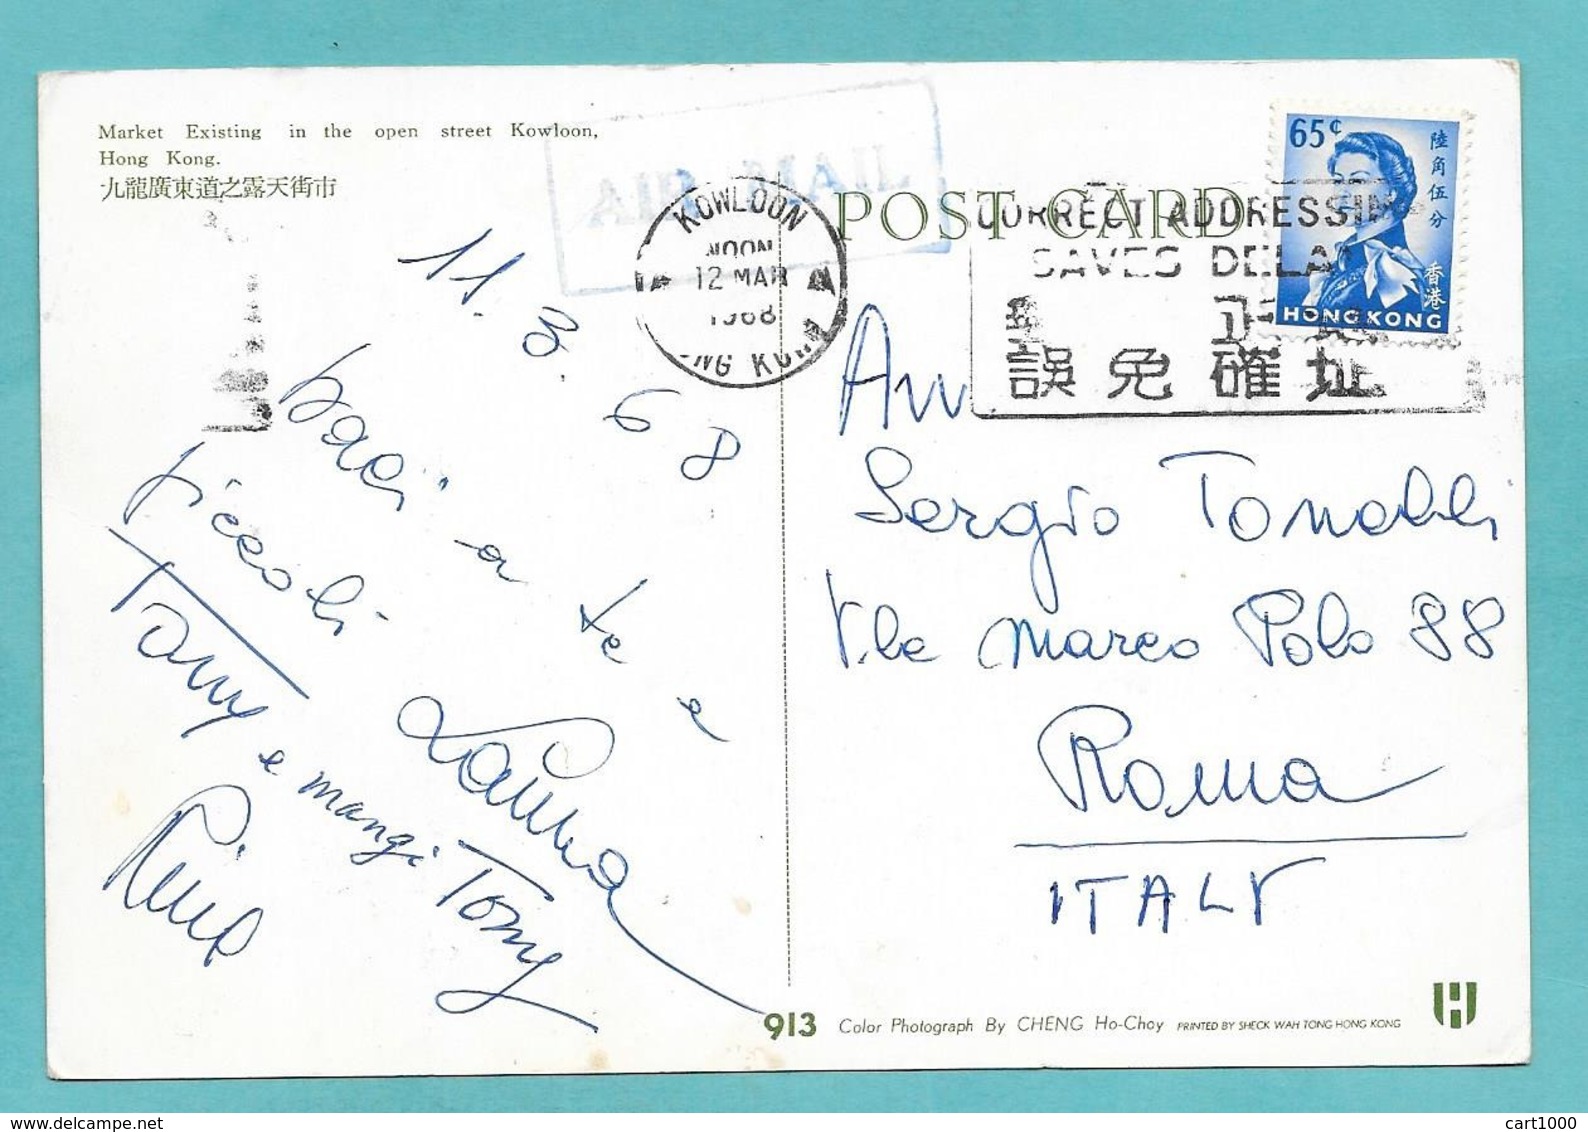 Market Existing in the open street Kowloon,
Hong Kong.
九龍廣東道之露天街市
AIR MAIL
11. 3. 68
baci a te e
piccoli
Tony e mangi Tony
POST CARD
KOWLOON
NOON
12 MAR
1968
HONG KONG
CORRECT ADDRESSING
SAVES DELAY
誤免確址
65¢
陸角伍分
香港
HONG KONG
Avv
Sergio Tonalli
V.le Marco Polo 88
Roma
ITALY
913 Color Photograph By CHENG Ho-Choy PRINTED BY SHECK WAH TONG HONG KONG
cart1000